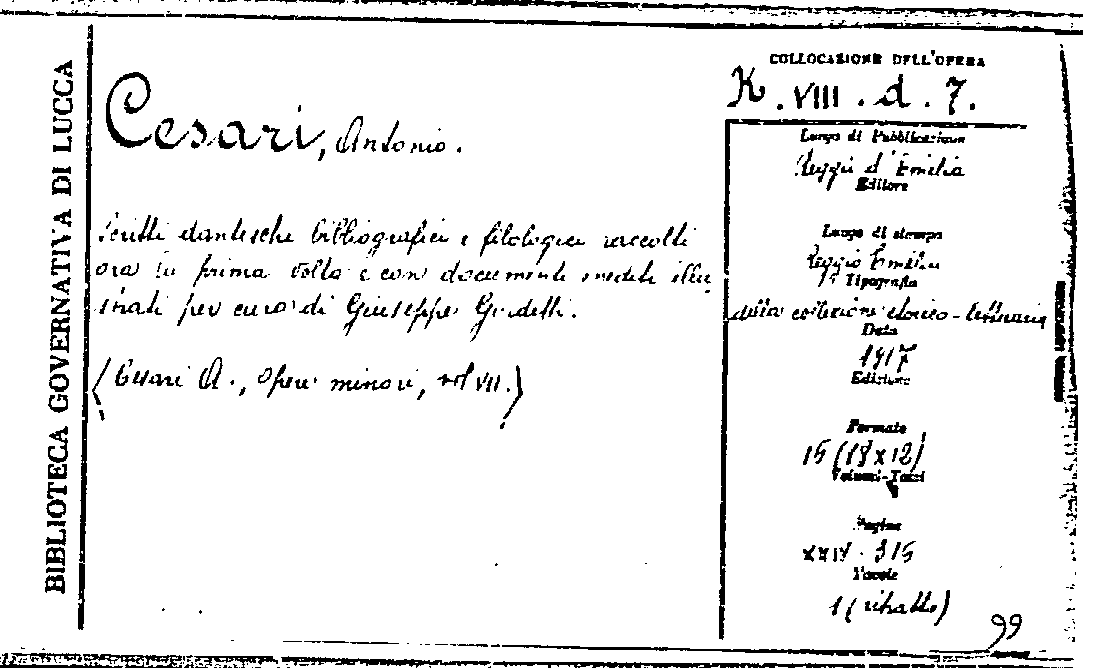 BIBLIOTECA GOVERNATIVA DI LUCCA
Cesari, Antonio.
Scritti danteschi bibliografici e filologici raccolti
ora la prima volta e con documenti inediti illu
strati per cura di Giuseppe Guidetti.
(Cesari A., Opere minori, vol VII.)
COLLOCAZIONE DELL'OPERA
K. VIII. d. 7.
Luogo di Pubblicazione
Reggio d'Emilia
Editore
Luogo di stampa
Reggio Emilia
Tipografia
della collezione storico-letteraria
Data
1917
Edizione
Formato
15 (18 x 12)
Volumi-Tomi
Pagine
XXIV. 315
Tavole
1 (ritratto)
99